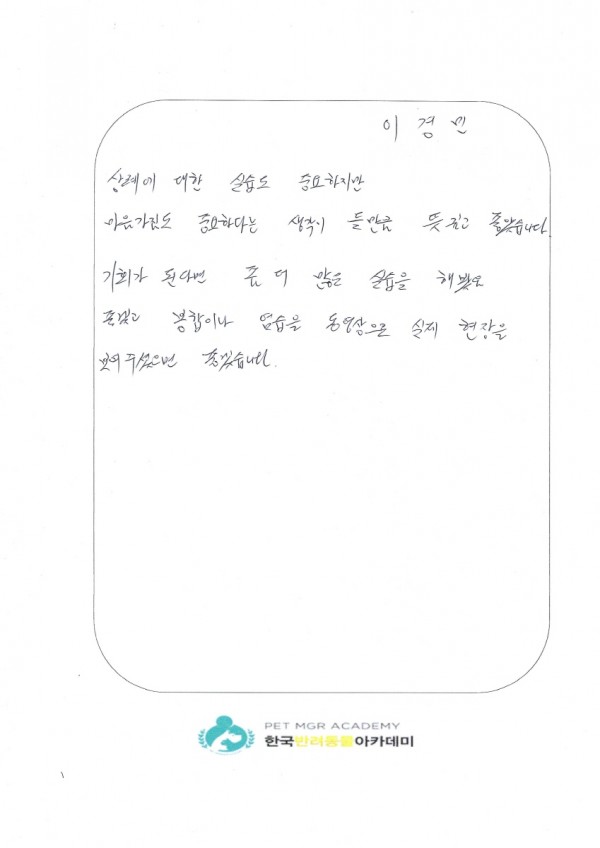 이 경 빈
상례에 대한 실습도 중요하지만
마음가짐도 중요하다는 생각이 들만큼 뜻깊고 좋았습니다.
기회가 된다면 좀 더 많은 실습을 해봤으
좋겠고 봉합이나 염습을 동영상으로 실제 현장을
보여주셨으면 좋겠습니다.
PET MGR ACADEMY
한국반려동물아카데미